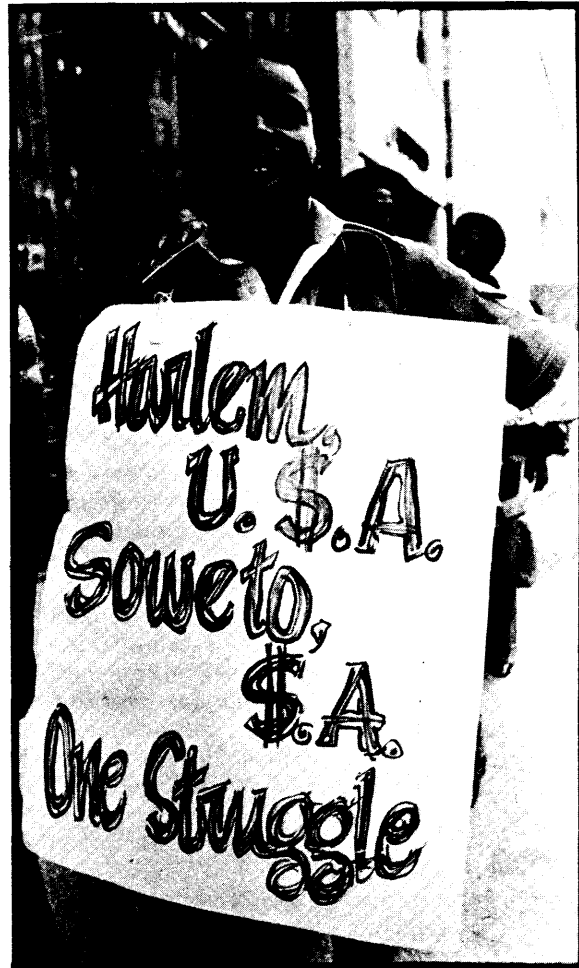 Harlem,
U.$.A.
Soweto,
$.A.
One Struggle